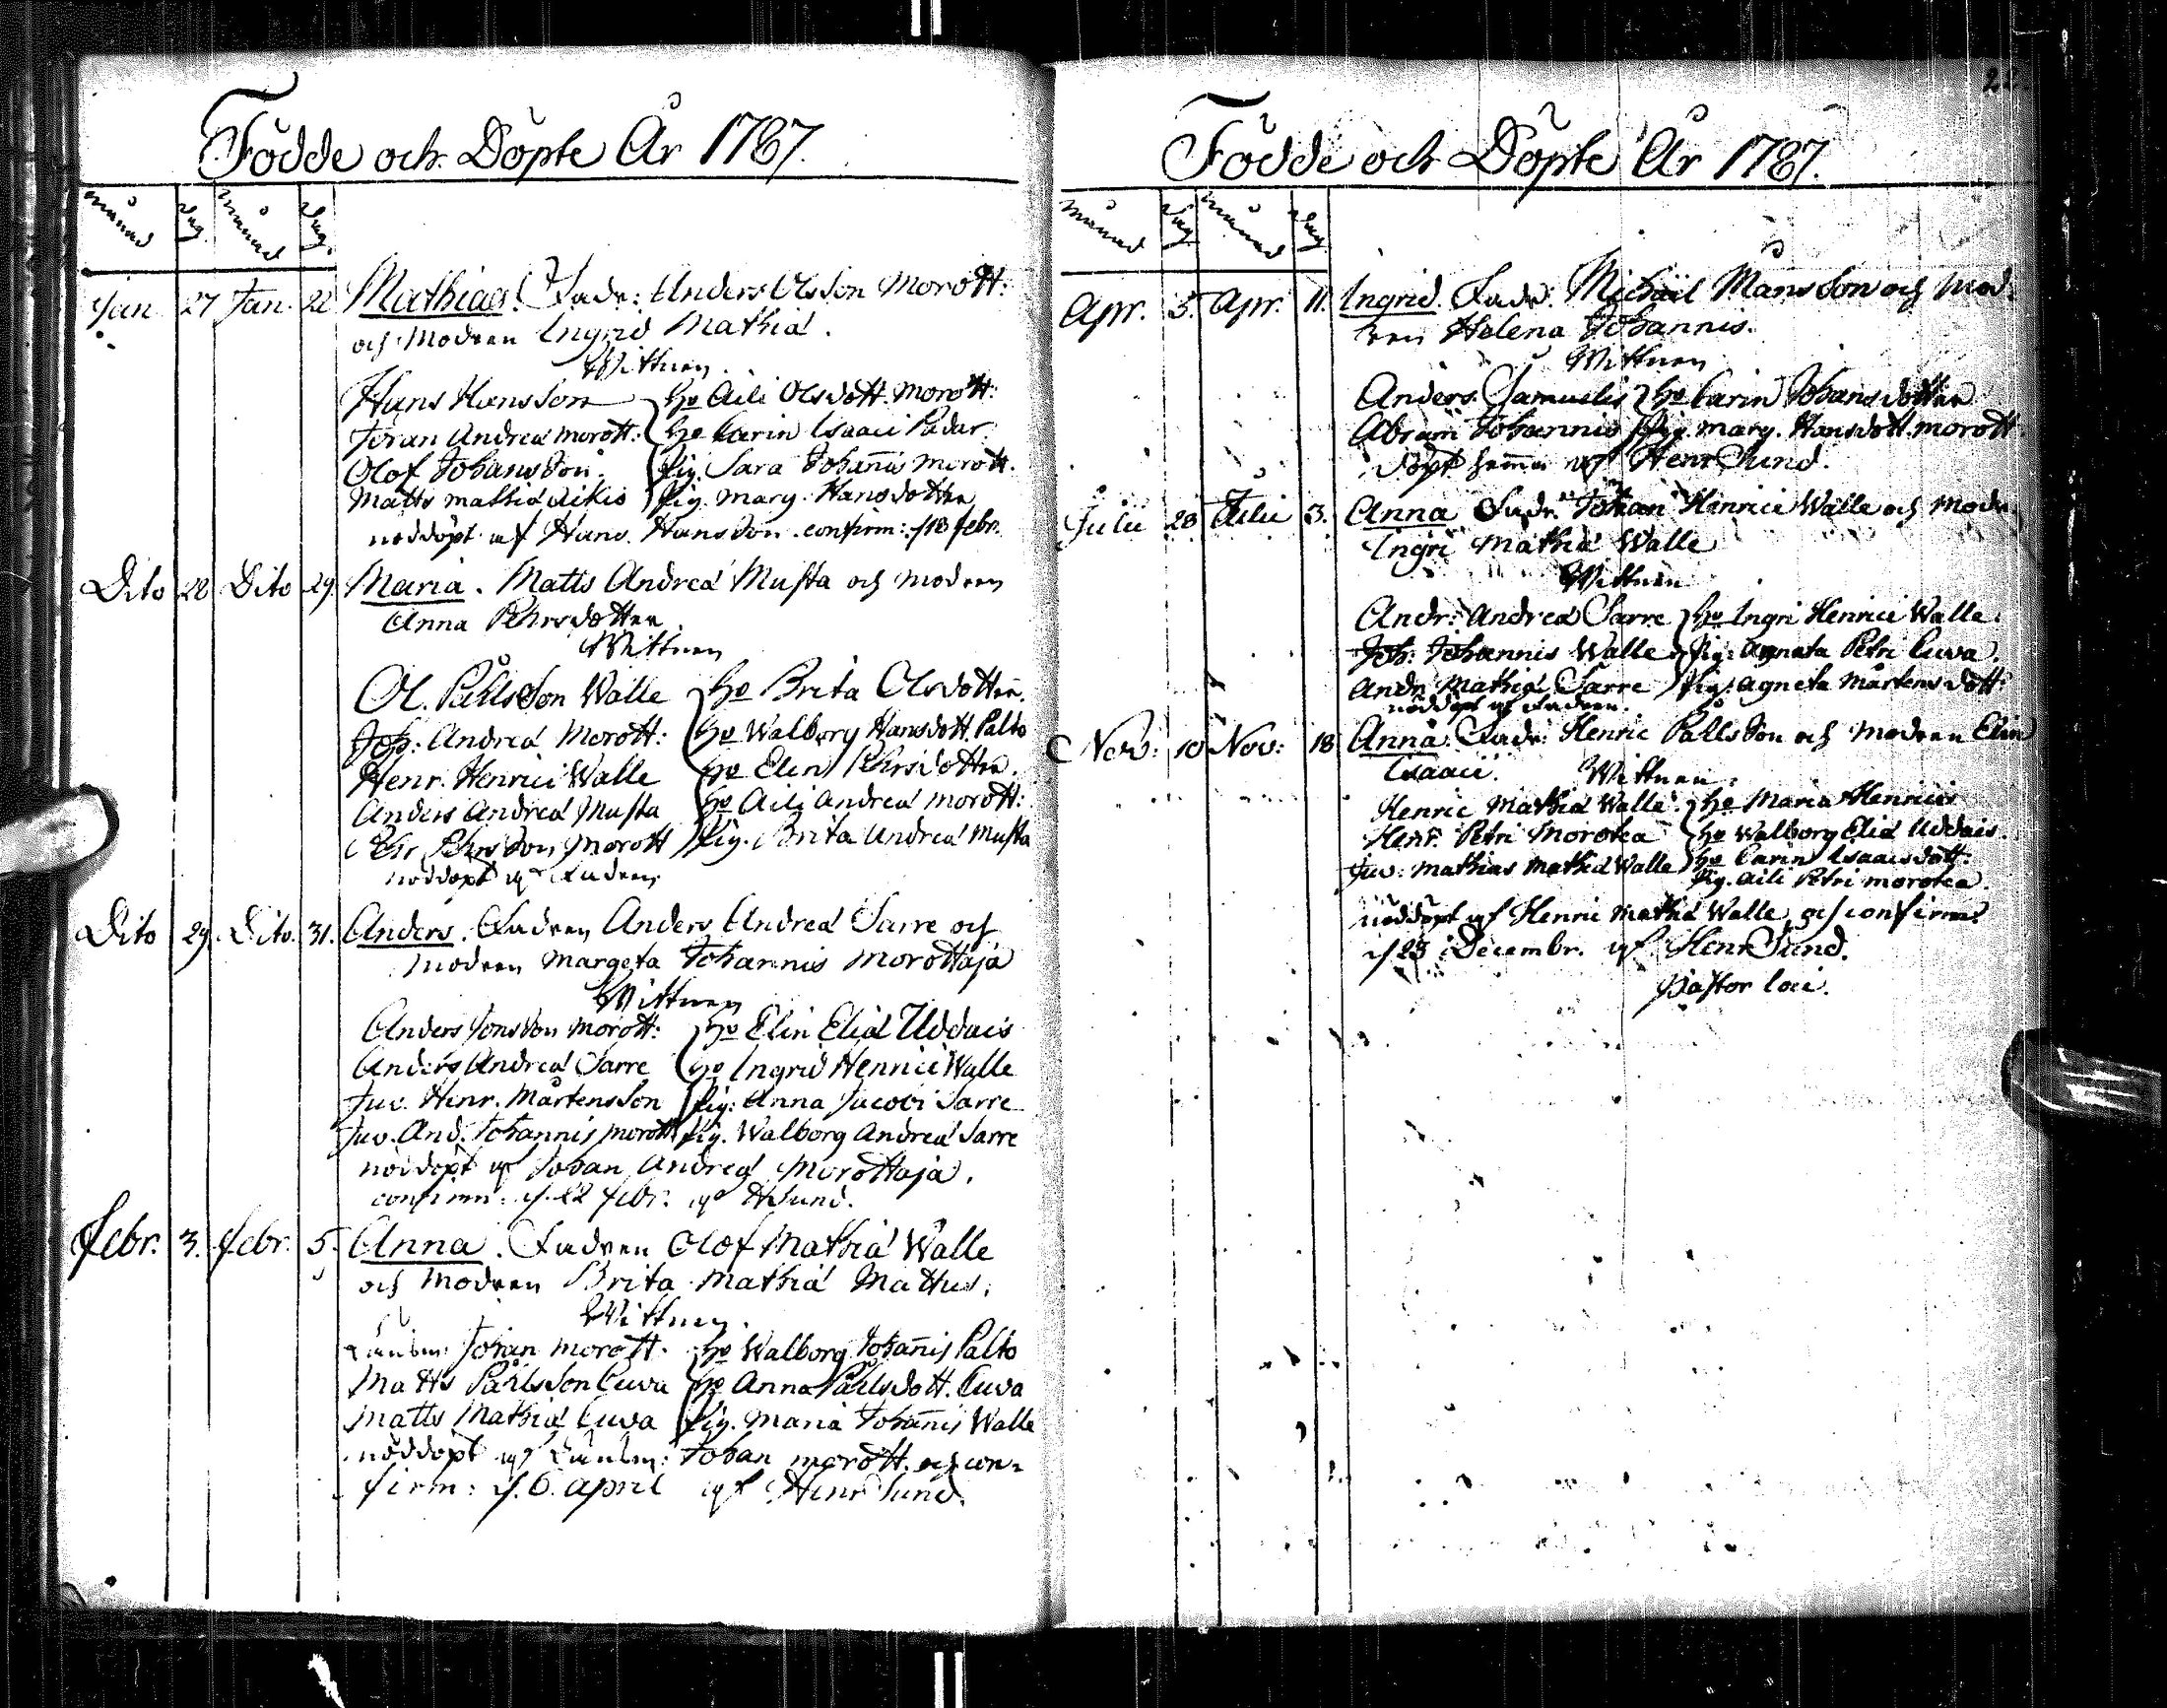 Födde och Döpte År 1787.
Månad Dag Månad Dag.
Jan 27 Jan. 28 Mathias. Fadr: Anders Olsson Morott:
och Modren Ingrid Mathiæ.
Wittnen.
Hans Hansson hu Aili Olsdott. Morott:
Johan Andreæ Morott: hu Carin Isaaci Padar
Olof Johansson. pig. Sara Johañis Morott.
Matts Mathiæ Aikio pig. Marg. Hansdotter
nöddöpt af Hans Hansson. confirm: d 18 febr.
Dito 28 Dito 29. Maria. Matts Andreæ Musta och Modren
Anna Pehrsdotter.
Wittnen
Ol. Påhlsson Walle hu Brita Olsdotter.
Joh: Andreæ Morott: hu Walborg Hansdott. Palto
Henr. Henrici Walle hu Elin Pehrsdotter.
Anders Andreæ Musta hu Aili Andreæ Morott:
Pehr Pehrsson Morott pig. Brita Andreæ Musta
nöddöpt af Fadren
Dito 29. Dito. 31. Anders. Fadren Anders Andreæ Sarre och
Modren Margeta Johannis Morottaja
Wittnen
Anders Jonsson Morott: hu Elin Eliæ Uddais
Anders Andreæ Sarre hu Ingrid Henrici Walle
Juv. Henr. Mårtensson pig: Anna Jacobi Sarre
Juv. And. Johannis Morott pig. Walborg Andreæ Sarre
nöddöpt af Johan Andreæ Morottaja.
confirm: d. 22 febr. af HSund.
Febr. 3. febr. 5. Anna. Fadren Olof Mathiæ Walle
och Modren Brita Mathiæ Mattus.
Wittnen.
Länsm: Johan Morott. hu Walborg Johañis Palto
Matts Påhlsson Cuva hu Anna Påhlsdott. Cuva
Matts Mathiæ Cuva pig. Maria Johañis Walle
nöddöpt af Länsm: Johan Morott. och con=
firm: d. 6. April af Henr Sund.
Födde och Döpte År 1787.
Månad Dag Månad Dag
Apr. 5. Apr. 11. Ingrid. Fadr. Michäel Månsson och Mod=
ren Helena Johannis.
Wittnen
Anders Samuelis hu Carin Johansdotter
Abram Johannis pig. Marg. Hansdott. Morott
döpt hemma af Henr Sund.
Julii 28 Julii 3. Anna Fadr. Johan Henrici Walle och Modr.
Ingri Mathiæ Walle
Wittnen
Andr: Andreæ Sarre hu Ingri Henrici Walle.
Joh: Johannis Walle pig: Agneta Petri Cuva.
Andr Mathiæ Sarre pig: Agneta Mårtens dott:
nöddöpt af Fadren.
Nov: 10 Nov: 18 Anna. Fadr: Henric Påhlsson och Modren Elin
Isaaci. Wittnen:
Henric Mathiæ Walle hu Maria Henrici
Henr. Petri Morotea hu Walborg Eliæ Uddais.
Juv: Mathias Mathiæ Walle hu Carin Isaacsdott.
pig. Aili Petri Morotea.
nöddöpt af Henric Mathiæ Walle, och confirm:
d 23 Decembr. af Henr Sund.
Pastor loci.